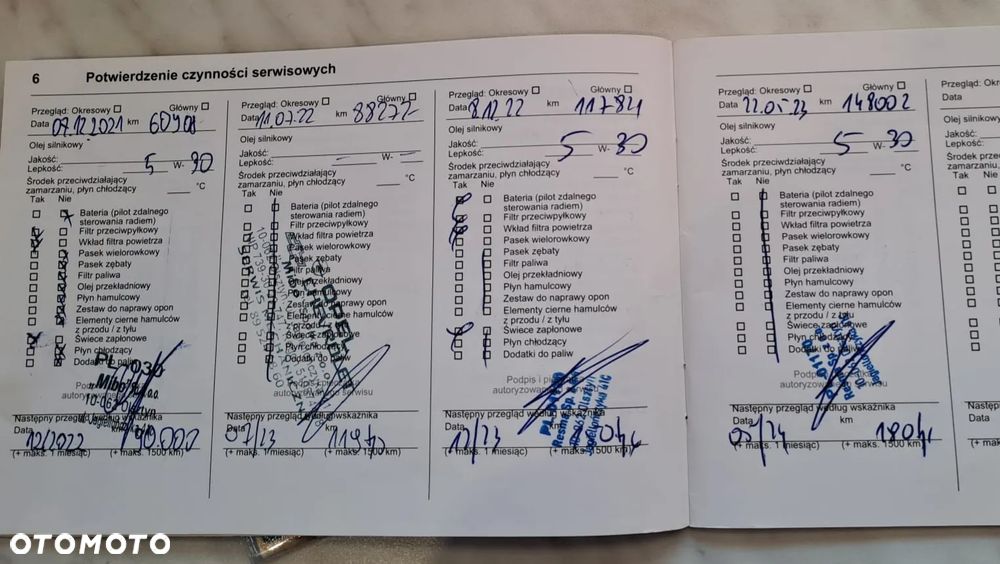 6 Potwierdzenie czynności serwisowych
Przegląd: Okresowy Główny
Data 07.12.2021 km 60908
Olej silnikowy
Jakość:
Lepkość: 5 W- 30
Środek przeciwdziałający
zamarzaniu, płyn chłodzący °C
Tak Nie
Bateria (pilot zdalnego
sterowania radiem)
Filtr przeciwpyłkowy
Wkład filtra powietrza
Pasek wielorowkowy
Pasek zębaty
Filtr paliwa
Olej przekładniowy
Płyn hamulcowy
Zestaw do naprawy opon
Elementy cierne hamulców
z przodu / z tyłu
Świece zapłonowe
Płyn chłodzący
Dodatki do paliw
Następny przegląd według wskaźnika
Data km
12/2022 90.000
(+ maks. 1 miesiąc) (+ maks. 1500 km)
Przegląd: Okresowy Główny
Data 11.07.22 km 88272
Olej silnikowy
Jakość:
Lepkość: W-
Środek przeciwdziałający
zamarzaniu, płyn chłodzący °C
Tak Nie
Bateria (pilot zdalnego
sterowania radiem)
Filtr przeciwpyłkowy
Wkład filtra powietrza
Pasek wielorowkowy
Pasek zębaty
Filtr paliwa
Olej przekładniowy
Płyn hamulcowy
Zestaw do naprawy opon
Elementy cierne hamulców
z przodu / z tyłu
Świece zapłonowe
Płyn chłodzący
Dodatki do paliw
Następny przegląd według wskaźnika
Data km
07/23
(+ maks. 1 miesiąc) (+ maks. 1500 km)
Przegląd: Okresowy Główny
Data 8.12.22 km 117841
Olej silnikowy
Jakość:
Lepkość: 5 W- 30
Środek przeciwdziałający
zamarzaniu, płyn chłodzący °C
Tak Nie
Bateria (pilot zdalnego
sterowania radiem)
Filtr przeciwpyłkowy
Wkład filtra powietrza
Pasek wielorowkowy
Pasek zębaty
Filtr paliwa
Olej przekładniowy
Płyn hamulcowy
Zestaw do naprawy opon
Elementy cierne hamulców
z przodu / z tyłu
Świece zapłonowe
Płyn chłodzący
Dodatki do paliw
Następny przegląd według wskaźnika
Data km
12/23
(+ maks. 1 miesiąc) (+ maks. 1500 km)
Przegląd: Okresowy Główny
Data 22.05.23 km 148002
Olej silnikowy
Jakość:
Lepkość: 5 W- 30
Środek przeciwdziałający
zamarzaniu, płyn chłodzący °C
Tak Nie
Bateria (pilot zdalnego
sterowania radiem)
Filtr przeciwpyłkowy
Wkład filtra powietrza
Pasek wielorowkowy
Pasek zębaty
Filtr paliwa
Olej przekładniowy
Płyn hamulcowy
Zestaw do naprawy opon
Elementy cierne hamulców
z przodu / z tyłu
Świece zapłonowe
Płyn chłodzący
Dodatki do paliw
autoryzowanego serwisu
Następny przegląd według wskaźnika
Data km
05/24
(+ maks. 1 miesiąc) (+ maks. 1500 km)
Przegląd:
Data
Olej silnikowy
Jakość:
Tak
OTOMOTO